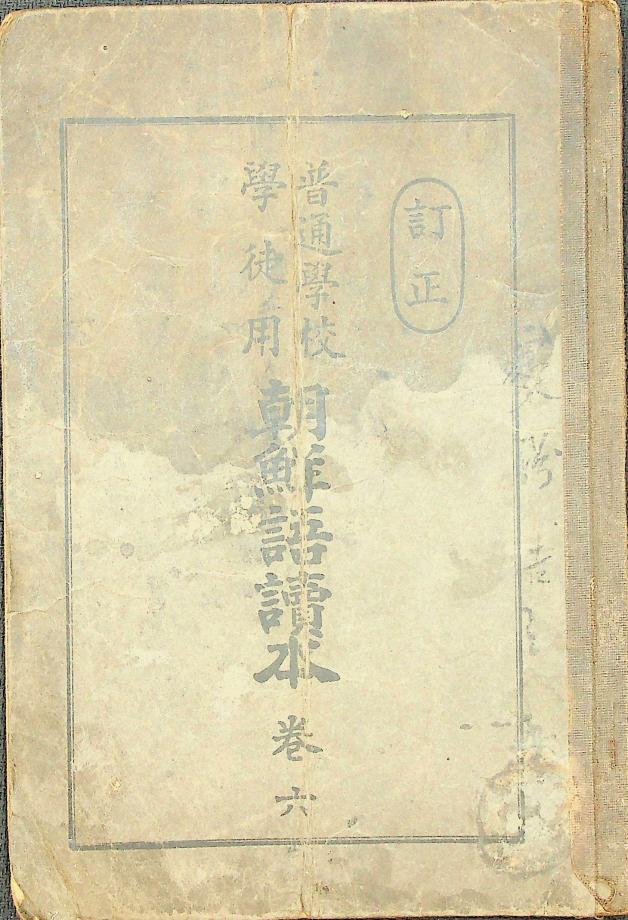 訂正
普通學校
學徒用
朝鮮語讀本
卷六